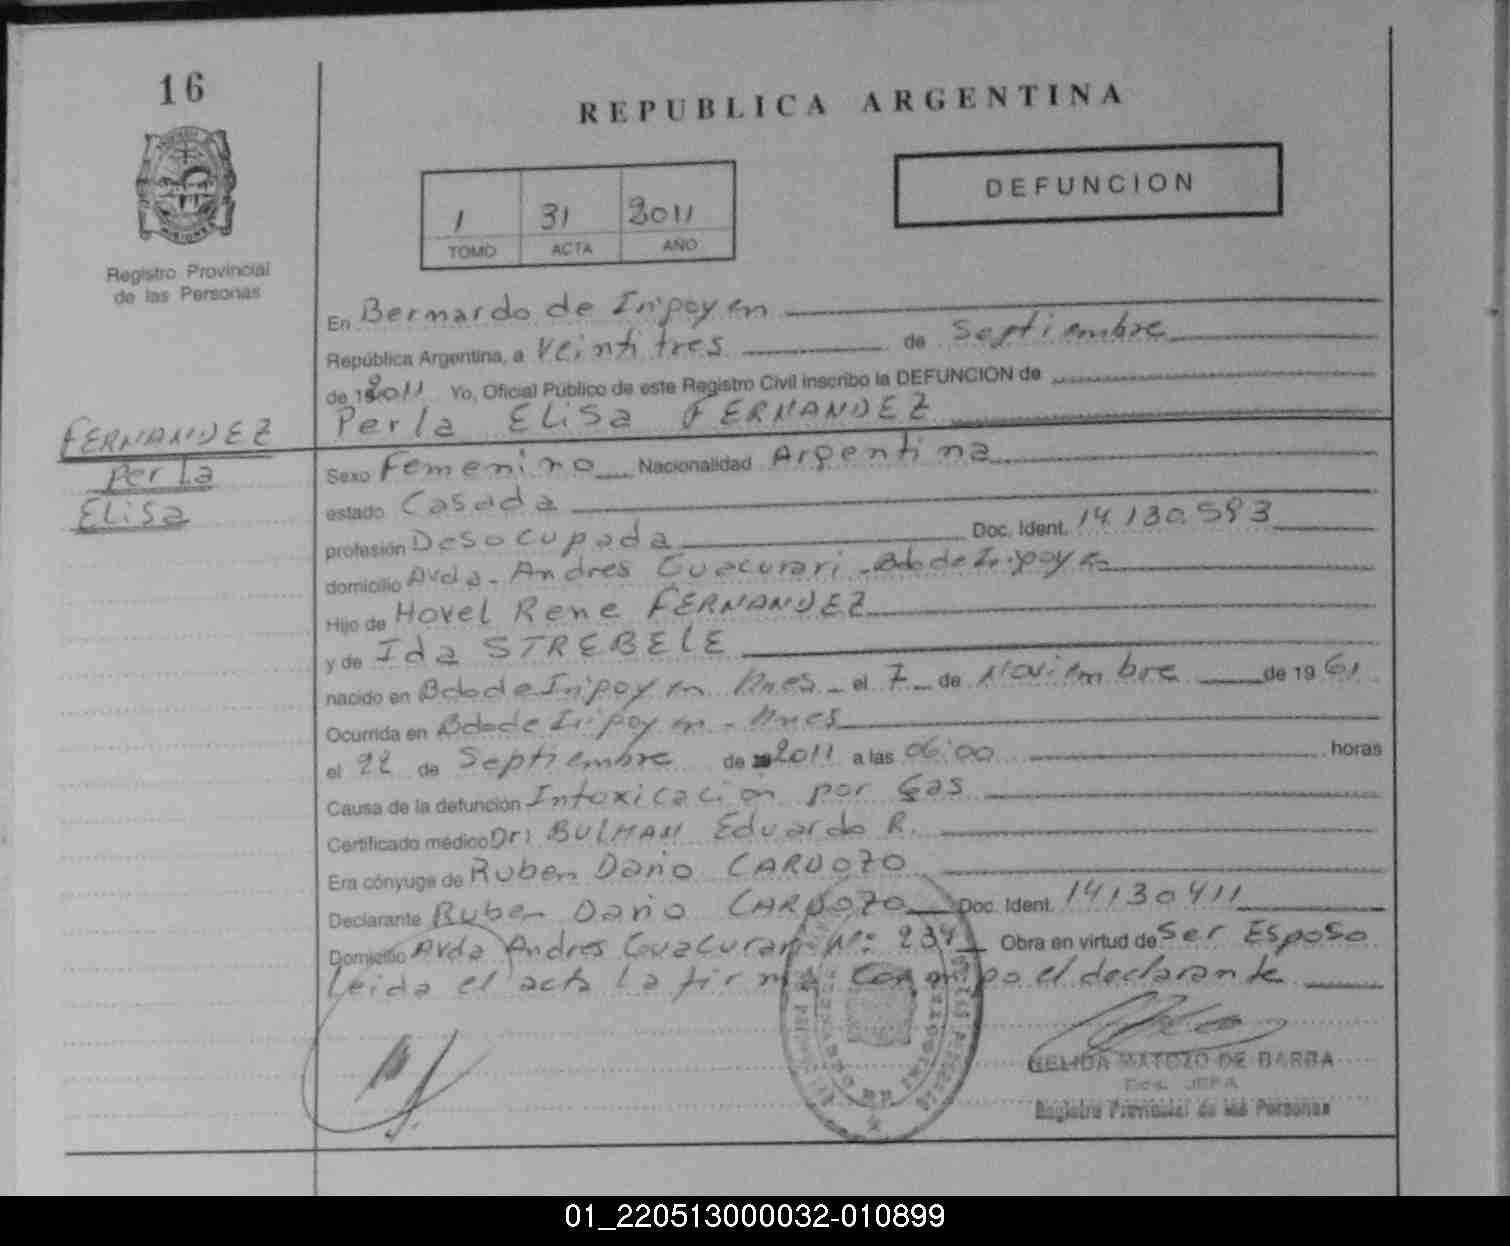 16
REPUBLICA ARGENTINA
DEFUNCION
1 31 2011
TOMO ACTA AÑO
MISIONES
Registro Provincial
de las Personas
En Bernardo de Irigoyen
República Argentina, a Veintitres de Septiembre
de 2011 Yo, Oficial Público de este Registro Civil inscribo la DEFUNCION de
Perla Elisa FERNANDEZ
FERNANDEZ
Perla
Elisa
Sexo Femenino Nacionalidad Argentina
estado Casada
profesión Desocupada Doc. Ident. 14.130.593
domicilio Avda. Andres Guacurari - Bdo de Irigoyen
Hijo de Hovel Rene FERNANDEZ
y de Ida STREBELE
nacido en Bdo de Irigoyen Mnes - el 7 de Noviembre de 1961
Ocurrida en Bdo de Irigoyen - Mnes
el 22 de Septiembre de 2011 a las 06:00 horas
Causa de la defunción Intoxicacion por Gas
Certificado médico Dr: BULMAN Eduardo R.
Era cónyuge de Ruben Dario CARDOZO
Declarante Ruben Dario CARDOZO Doc. Ident. 14130411
Domicilio Avda Andres Guacurari Nº: 234 Obra en virtud de Ser Esposo
Leida el acta la firma conmigo el declarante
MATOZO DE BARBA
JEFA
Registro Provincial de las Personas
01_220513000032-010899